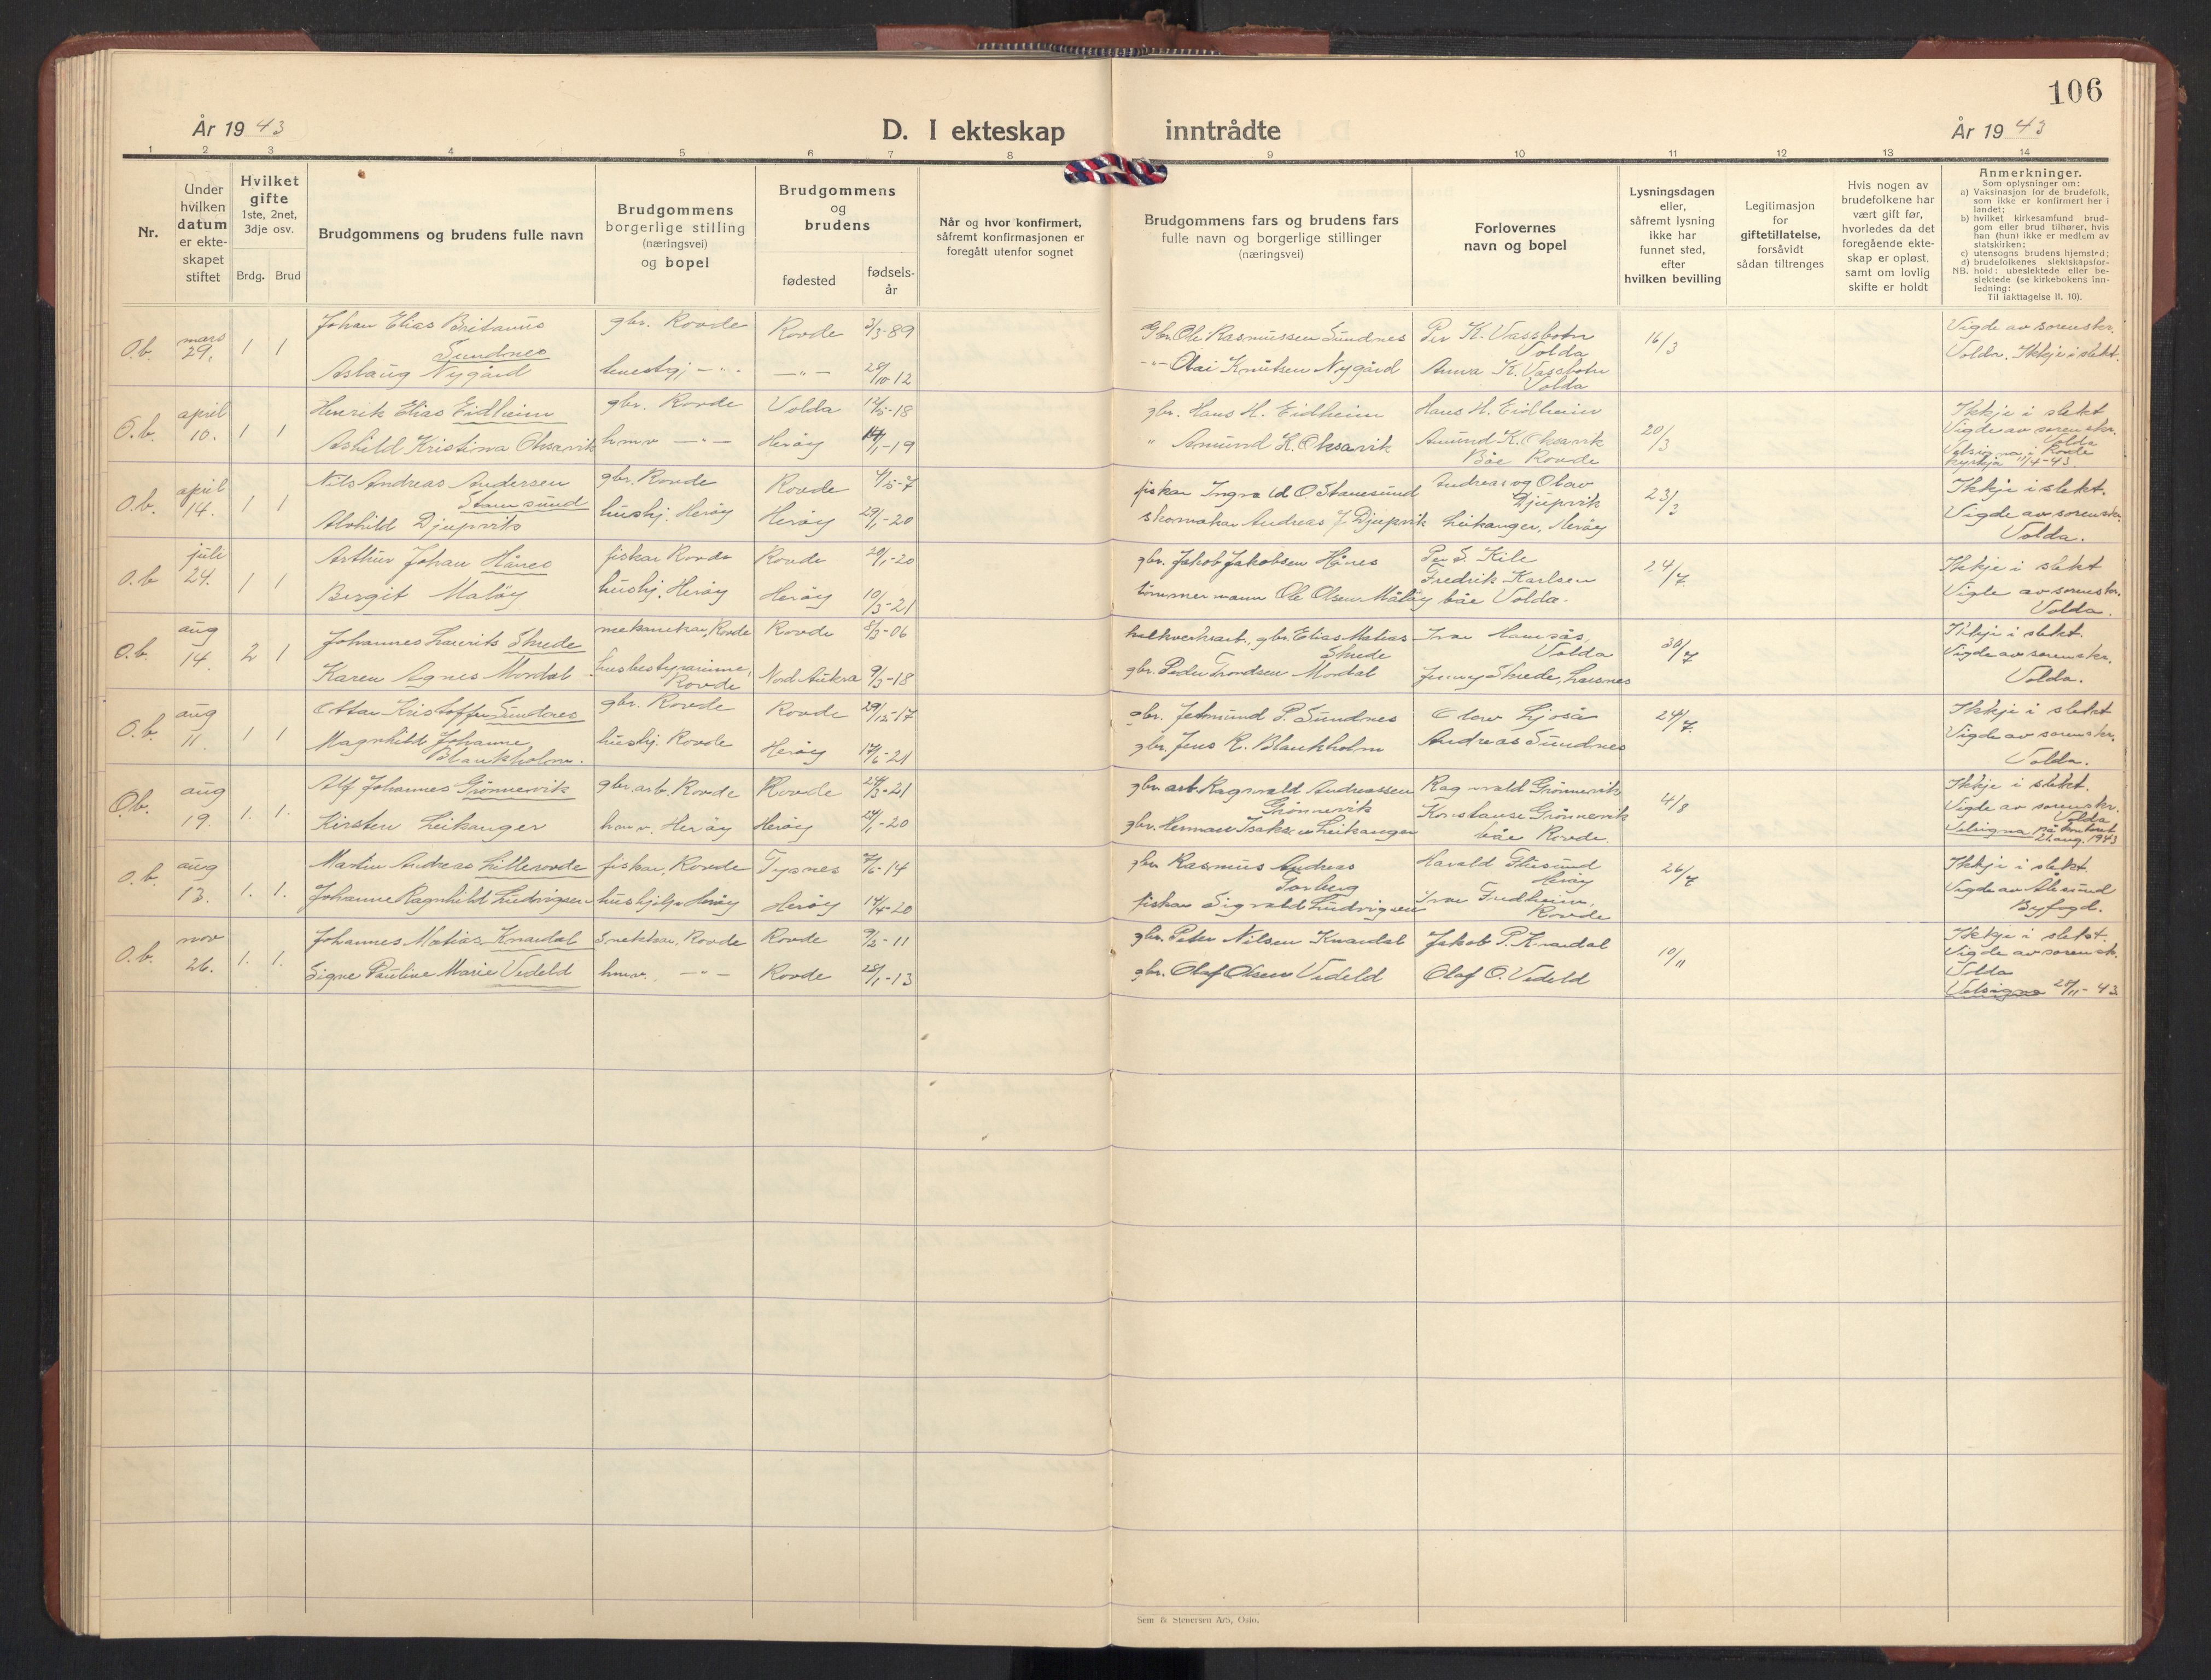 106
År 1943
D. I ekteskap inntrådte
År 1943
1 2 3 4 5 6 7 8 9 10 11 12 13 14
Nr.
Under
hvilken
datum
er ekte-
skapet
stiftet
Hvilket
gifte
1ste, 2net,
3dje osv.
Brdg. Brud
Brudgommens og brudens fulle navn
Brudgommens
borgerlige stilling
(næringsvei)
og bopel
Brudgommens
og
brudens
fødested
fødsels-
år
Når og hvor konfirmert,
såfremt konfirmasjonen er
foregått utenfor sognet
Brudgommens fars og brudens fars
fulle navn og borgerlige stillinger
(næringsvei)
Forlovernes
navn og bopel
Lysningsdagen
eller,
såfremt lysning
ikke har
funnet sted,
efter
hvilken bevilling
Legitimasjon
for
giftetillatelse,
forsåvidt
sådan tiltrenges
Hvis nogen av
brudefolkene har
vært gift før,
hvorledes da det
foregående ekte-
skap er opløst,
samt om lovlig
skifte er holdt
Anmerkninger.
Som oplysninger om:
a) Vaksinasjon for de brudefolk,
som ikke er konfirmert her i
landet;
b) hvilket kirkesamfund brud-
gom eller brud tilhører, hvis
han (hun) ikke er medlem av
statskirken;
c) utensogns brudens hjemsted;
d) brudefolkenes slektskapsfor-
NB. hold: ubeslektede eller be-
slektede (se kirkebokens inn-
ledning:
Til iakttagelse II. 10).
O.b. mars 29. 1 1
Johan Elias Sundnes gbr. Rovde Rovde 3/3-89
Aslaug Nygård -"- 28/10 12
Gbr. Ole Rasmussen Sundnes Per K. Vassbotn Volda 16/3
-"- Olai Knutsen Nygård Anna K. Vassbotn Volda
Vigde av sorenskr.
Volda. Ikkje i slekt.
O.b. april 10. 1 1
Henrik Elias Eidheim gbr. Rovde Volda 12/5-18
Åshild Kristina Oksavik hmv -"- Herøy 1-19
gbr. Hans H. Eidheim Hans H. Eidheim 20/3
" Amund K. Oksavik Amund K. Oksavik
Båe Rovde
Ikkje i slekt
Vigde av sorenskr.
Volda
Velsigna i Rovde
kyrkja 11/4-43
O.b. april 14. 1 1
Nils Andreas Andersen gbr. Rovde Rovde 4/5-7
Alvhild Djupvik hushj. Herøy Herøy 29/1-20
fiskar Ingvald O. Andreas og Olav Djupvik 23/3
skomakar Andreas J. Djupvik Leikanger, Herøy
Ikkje i slekt.
Vigde av sorenskr.
Volda.
O.b juli 24. 1 1
Arthur Johan Hånes fiskar Rovde Rovde 20/1-20
Bergit Måløy hushj. Herøy Herøy 10/3-21
gbr. Jakob Jakobsen Hånes Per S. Kile 24/7
tømmermann Ole Olsen Måløy Fredrik Karlsen
båe Volda.
Ikkje i slekt
Vigde av sorenskr.
Volda.
O.b. aug 14. 2 1
Johannes Laurits Skrede mekanikar, Rovde Rovde 8/3-06
Karen Agnes Mordal husbestyrarinne, Rovde Nord Aukra 9/3-18
gbr. Elias Matias Skrede Volda 30/7
gbr. Peder Trondsen Mordal Jenny Skrede
Ikkje i slekt.
Vigde av sorenskr.
Volda.
O.b. aug 11. 1 1
Ottar Kristoffer Sundnes gbr. Rovde Rovde 29/12-17
Magnhild Johanne Blankholm. hushj. Rovde Herøy 17/6-21
gbr. Jetmund P. Sundnes Olav Ljoså 24/7.
gbr. Jens R. Blankholm Andreas Sundnes
Ikkje i slekt
Vigde av sorenskr.
Volda.
O.b. aug 19. 1. 1.
Alf Johannes Grønnevik gbr. arb. Rovde Rovde 24/3-21
Kirsten Leikanger hmv. Herøy Herøy 1-20
gbr. arb. Ragnvald Andreassen Grønnevik Ragnvald Grønnevik 4/8
gbr. Herman Isaksen Leikanger Konstanse Grønnevik
båe Rovde.
Ikkje i slekt.
Vigde av sorenskr.
Volda
Velsigna 22 aug. 1943
O.b. aug 13. 1. 1.
Martin Andreas Lillerovde fiskar, Rovde Tysnes 6-14
Johanne Ragnhild Ludvigsen hushjelp Herøy Herøy 14/4-20
gbr. Rasmus Andreas Harald Herøy 26/7
fiskar Sigvald Ludvigsen Ivar Fredheim, Rovde
Ikkje i slekt.
Vigde av Ålesund
Byfogd.
O.b. nov 26. 1. 1.
Johannes Matias Knardal snekkar, Rovde Rovde 9/2-11
Signe Pauline Marie Vedeld hmv. -"- Rovde 28/1-13
gbr. Peter Nilsen Knardal Jakob P. Knardal 10/11
gbr. Olaf Olsen Vedeld Olaf O. Vedeld
Ikkje i slekt.
Vigde av sorensk.
Volda
Velsigna 28/11-43
Sem & Stenersen A/S, Oslo.